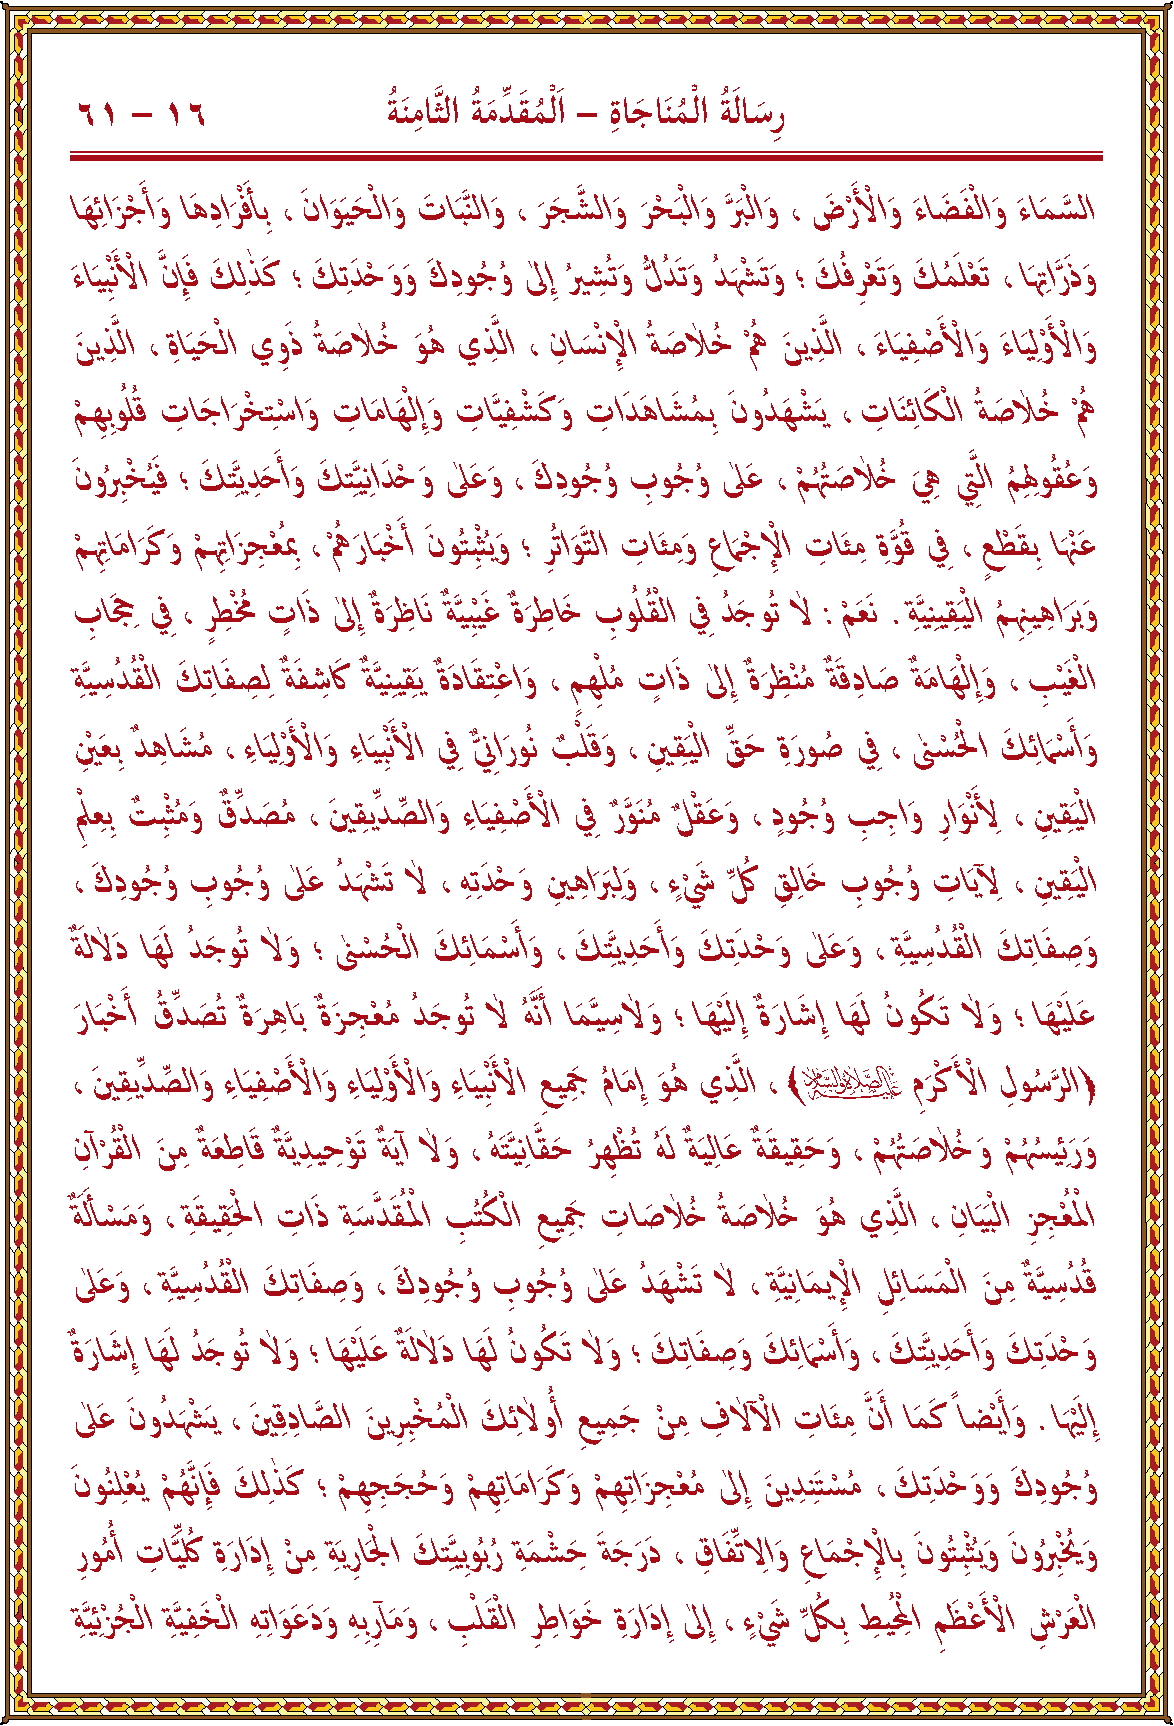 رِسَالَةُ الْمُنَاجَاةِ – اَلْمُقَدِّمَةُ الثَّامِنَةُ ١٦ – ٦١
السَّمَاءَ وَالْفَضَاءَ وَالْأَرْضَ ، وَالْبَرَّ وَالْبَحْرَ وَالشَّجَرَ ، وَالنَّبَاتَ وَالْحَيَوَانَ ، بِأَفْرَادِهَا وَأَجْزَائِهَا
وَذَرَّاتِهَا ، تَعْلَمُكَ وَتَعْرِفُكَ ؛ وَتَشْهَدُ وَتَدُلُّ وَتُشِيرُ إِلىٰ وُجُودِكَ وَوَحْدَتِكَ ؛ كَذٰلِكَ فَإِنَّ الْأَنْبِيَاءَ
وَالْأَوْلِيَاءَ وَالْأَصْفِيَاءَ ، الَّذِينَ هُمْ خُلَاصَةُ الْإِنْسَانِ ، الَّذِي هُوَ خُلَاصَةُ ذَوِي الْحَيَاةِ ، الَّذِينَ
هُمْ خُلَاصَةُ الْكَائِنَاتِ ، يَشْهَدُونَ بِمُشَاهَدَاتِ وَكَشْفِيَّاتِ وَإِلْهَامَاتِ وَاسْتِخْرَاجَاتِ قُلُوبِهِمْ
وَعُقُولِهِمُ الَّتِي هِيَ خُلَاصَتُهُمْ ، عَلىٰ وُجُوبِ وُجُودِكَ ، وَعَلىٰ وَحْدَانِيَّتِكَ وَأَحَدِيَّتِكَ ؛ فَيُخْبِرُونَ
عَنْهَا بِقَطْعٍ ، فِي قُوَّةِ مِئَاتِ الْإِجْمَاعِ وَمِئَاتِ التَّوَاتُرِ ؛ وَيُثْبِتُونَ أَخْبَارَهُمْ ، بِمُعْجِزَاتِهِمْ وَكَرَامَاتِهِمْ
وَبَرَاهِينِهِمُ الْيَقِينِيَّةِ . نَعَمْ : لَا تُوجَدُ فِي الْقُلُوبِ خَاطِرَةٌ غَيْبِيَّةٌ نَاظِرَةٌ إِلىٰ ذَاتٍ مُخْطِرٍ ، فِي حِجَابِ
الْغَيْبِ ، وَإِلْهَامَةٌ صَادِقَةٌ مُنْظِرَةٌ إِلىٰ ذَاتٍ مُلْهِمٍ ، وَاعْتِقَادَةٌ يَقِينِيَّةٌ كَاشِفَةٌ لِصِفَاتِكَ الْقُدُسِيَّةِ
وَأَسْمَائِكَ الْحُسْنىٰ ، فِي صُورَةِ حَقِّ الْيَقِينِ ، وَقَلْبٌ نُورَانِيٌّ فِي الْأَنْبِيَاءِ وَالْأَوْلِيَاءِ ، مُشَاهِدٌ بِعَيْنِ
الْيَقِينِ ، لِأَنْوَارِ وَاجِبِ وُجُودٍ ، وَعَقْلٌ مُنَوَّرٌ فِي الْأَصْفِيَاءِ وَالصِّدِّيقِينَ ، مُصَدِّقٌ وَمُثْبِتٌ بِعِلْمِ
الْيَقِينِ ، لِآيَاتِ وُجُوبِ خَالِقِ كُلِّ شَيْءٍ ، وَلِبَرَاهِينِ وَحْدَتِهِ ، لَا تَشْهَدُ عَلىٰ وُجُوبِ وُجُودِكَ ،
وَصِفَاتِكَ الْقُدُسِيَّةِ ، وَعَلىٰ وَحْدَتِكَ وَأَحَدِيَّتِكَ ، وَأَسْمَائِكَ الْحُسْنىٰ ؛ وَلَا تُوجَدُ لَهَا دَلَالَةٌ
عَلَيْهَا ؛ وَلَا تَكُونُ لَهَا إِشَارَةٌ إِلَيْهَا ؛ وَلَاسِيَّمَا أَنَّهُ لَا تُوجَدُ مُعْجِزَةٌ بَاهِرَةٌ تُصَدِّقُ أَخْبَارَ
﴿الرَّسُولِ الْأَكْرَمِ عليه الصلاة والسلام﴾ ، الَّذِي هُوَ إِمَامُ جَمِيعِ الْأَنْبِيَاءِ وَالْأَوْلِيَاءِ وَالْأَصْفِيَاءِ وَالصِّدِّيقِينَ ،
وَرَئِيسُهُمْ وَخُلَاصَتُهُمْ ، وَحَقِيقَةٌ عَالِيَةٌ لَهُ تُظْهِرُ حَقَّانِيَّتَهُ ، وَلَا آيَةٌ تَوْحِيدِيَّةٌ قَاطِعَةٌ مِنَ الْقُرْآنِ
الْمُعْجِزِ الْبَيَانِ ، الَّذِي هُوَ خُلَاصَةُ خُلَاصَاتِ جَمِيعِ الْكُتُبِ الْمُقَدَّسَةِ ذَاتِ الْحَقِيقَةِ ، وَمَسْأَلَةٌ
قُدُسِيَّةٌ مِنَ الْمَسَائِلِ الْإِيمَانِيَّةِ ، لَا تَشْهَدُ عَلىٰ وُجُوبِ وُجُودِكَ ، وَصِفَاتِكَ الْقُدُسِيَّةِ ، وَعَلىٰ
وَحْدَتِكَ وَأَحَدِيَّتِكَ ، وَأَسْمَائِكَ وَصِفَاتِكَ ؛ وَلَا تَكُونُ لَهَا دَلَالَةٌ عَلَيْهَا ؛ وَلَا تُوجَدُ لَهَا إِشَارَةٌ
إِلَيْهَا . وَأَيْضاً كَمَا أَنَّ مِئَاتِ الْآلَافِ مِنْ جَمِيعِ أُولَائِكَ الْمُخْبِرِينَ الصَّادِقِينَ ، يَشْهَدُونَ عَلىٰ
وُجُودِكَ وَوَحْدَتِكَ ، مُسْتَنِدِينَ إِلىٰ مُعْجِزَاتِهِمْ وَكَرَامَاتِهِمْ وَحُجَجِهِمْ ؛ كَذٰلِكَ فَإِنَّهُمْ يُعْلِنُونَ
وَيُخْبِرُونَ وَيُثْبِتُونَ بِالْإِجْمَاعِ وَالِاتِّفَاقِ ، دَرَجَةَ حَشْمَةِ رُبُوبِيَّتِكَ الْجَارِيَةِ مِنْ إِدَارَةِ كُلِّيَّاتِ أُمُورِ
الْعَرْشِ الْأَعْظَمِ الْمُحِيطِ بِكُلِّ شَيْءٍ ، إِلىٰ إِدَارَةِ خَوَاطِرِ الْقَلْبِ ، وَمَآرِبِهِ وَدَعَوَاتِهِ الْخَفِيَّةِ الْجُزْئِيَّةِ